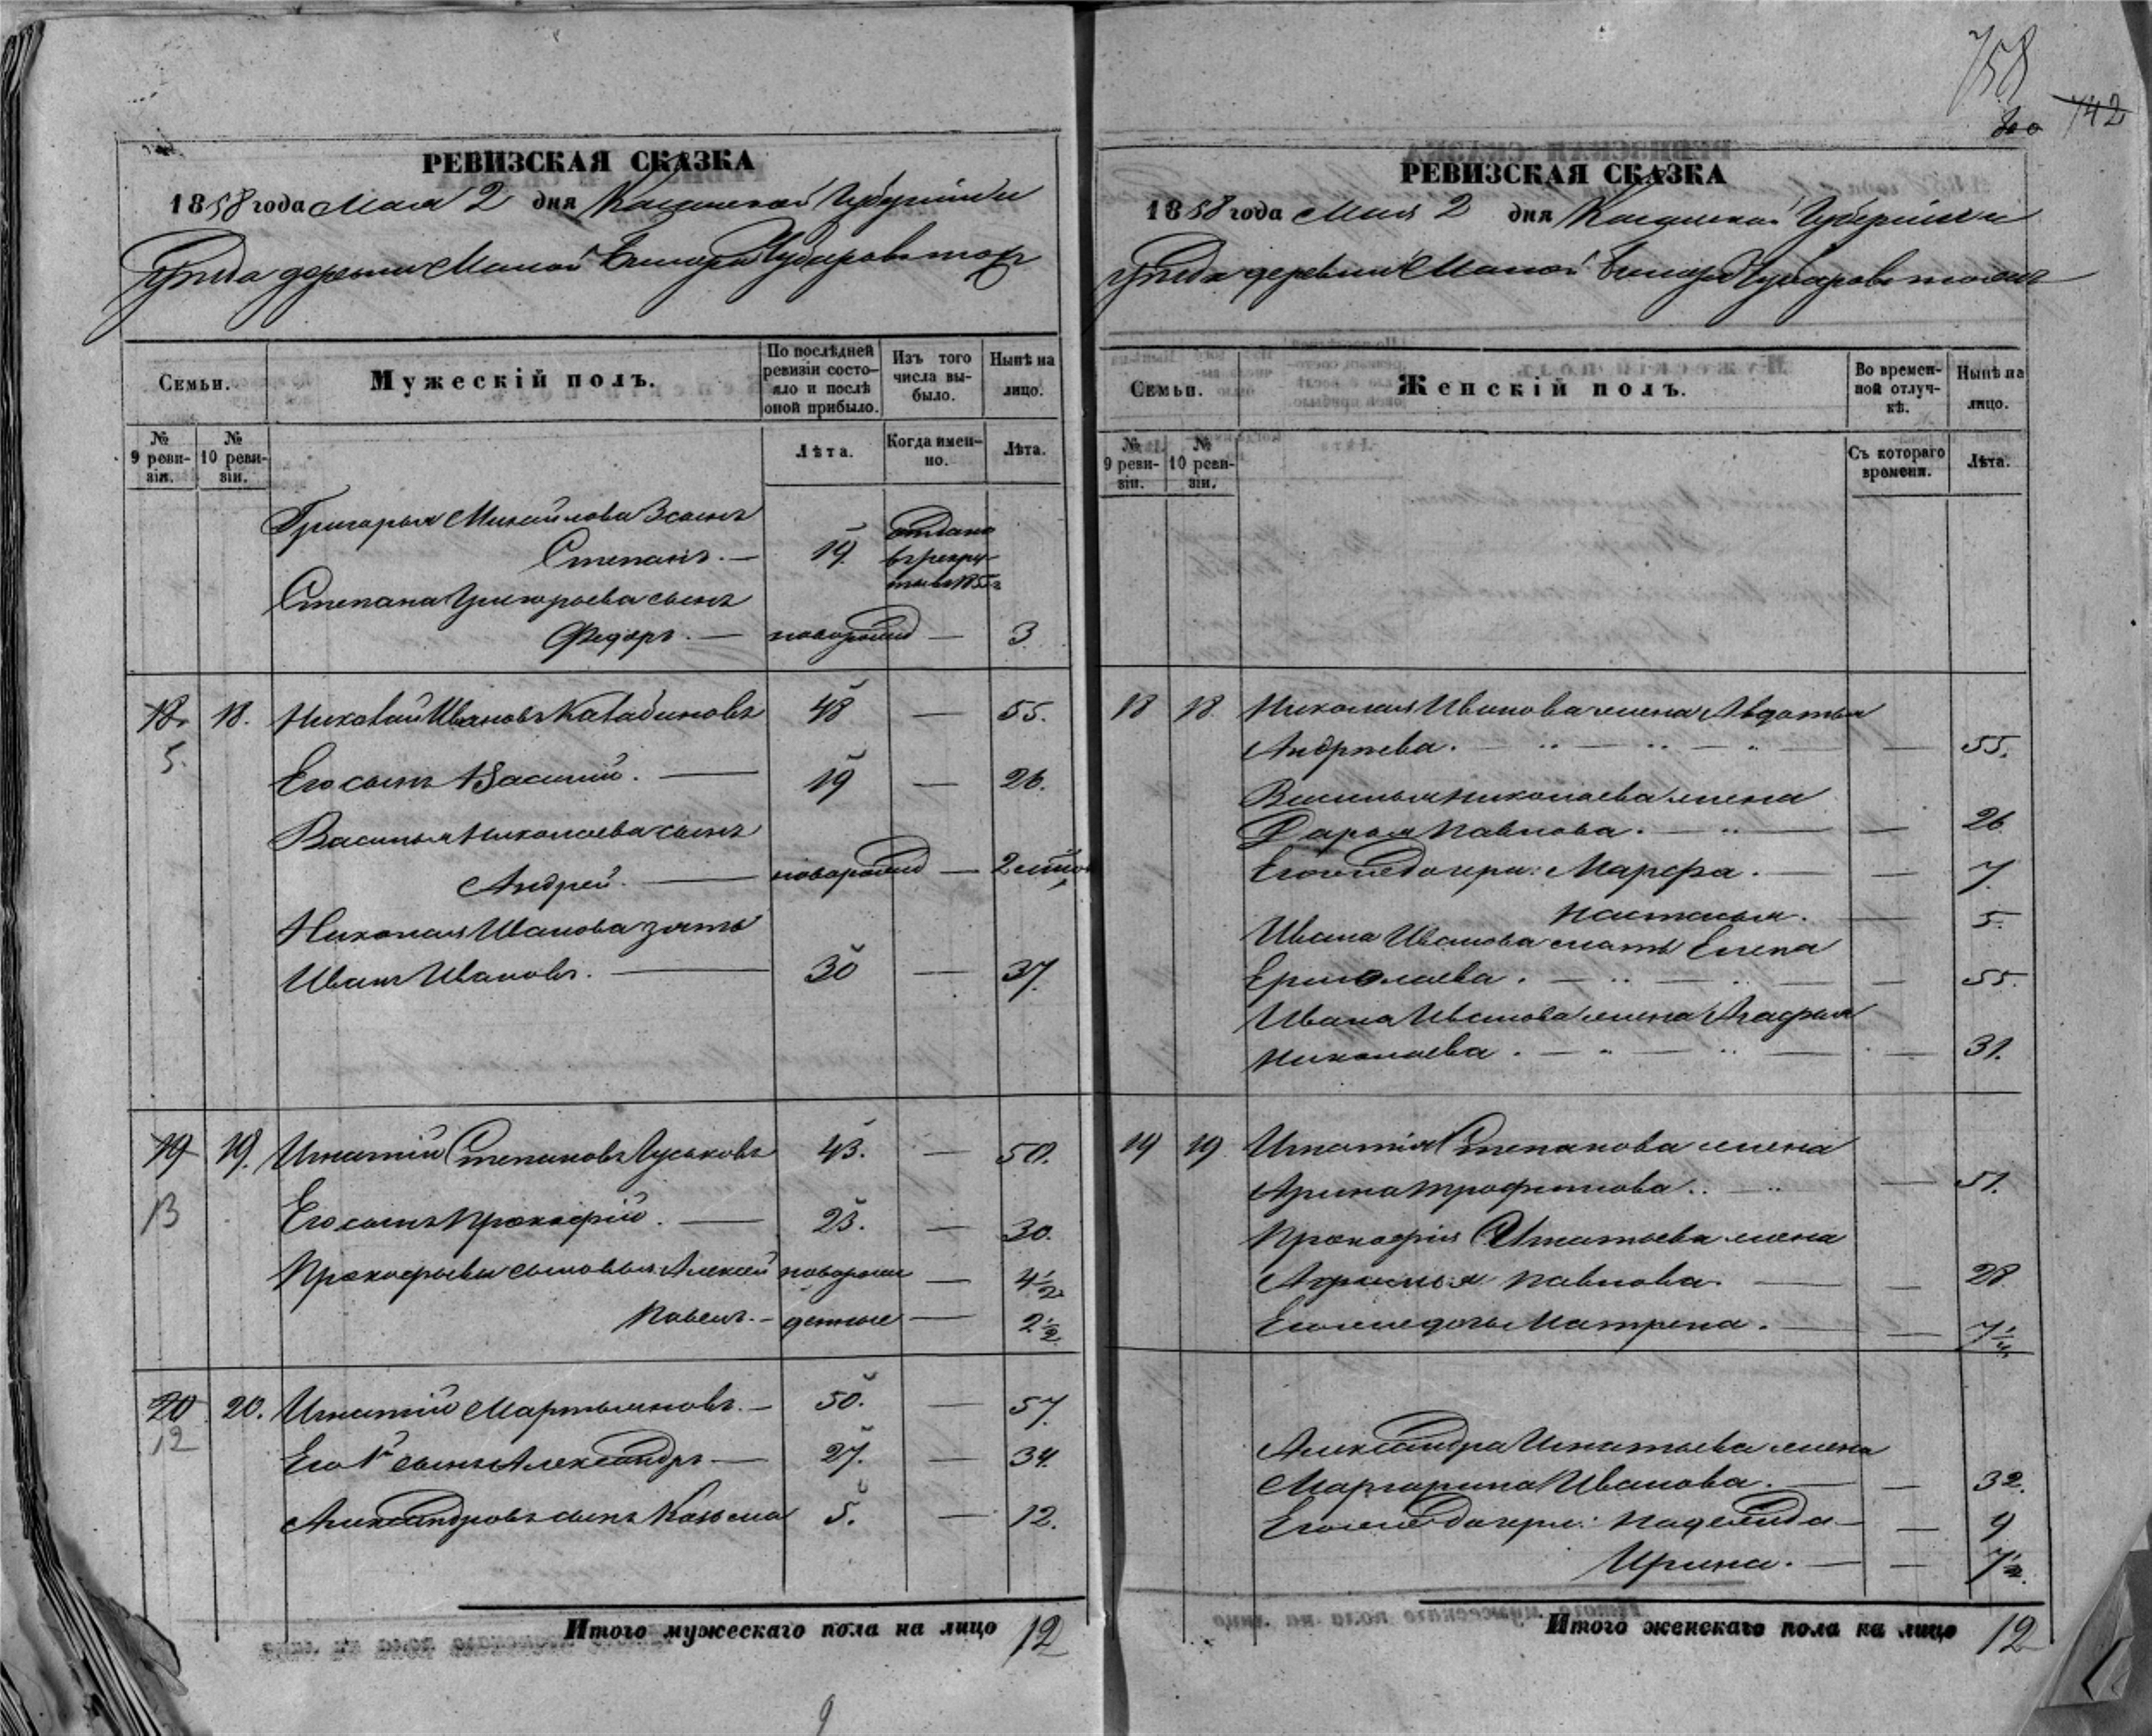 758
742
РЕВИЗСКАЯ СКАЗКА
1858 года Мая 2 дня Казанской Губерніи и
Уѣзда деревни Малой
Семьи.
Мужескій полъ.
По послѣдней ревизіи состояло и послѣ оной прибыло.
Изъ того числа выбыло.
Нынѣ на лицо.
№ 9 ревизіи.
№ 10 ревизіи.
Лѣта.
Когда именно.
Лѣта.
Григорья Михайлова 3 сынъ
Степанъ. — 19. отданъ в рекруты въ 185
Степана Григорьева сынъ
Федоръ. — новорожд — 3
18. 18. Николай Ивановъ Калабиновъ 48 — 55.
5.
Его сынъ Василий. — 19 — 26.
Василья Николаева сынъ
Андрей. — новорожд — 2
Николая Иванова зять
Иванъ Ивановъ. — 30 — 37.
19 19. Игнатій Степановъ Гуськовъ 43. — 50.
13
Его сынъ Прокофій. — 23. — 30.
Прокофьевы сыновья: Алексей новорож — 4 1/2
Павелъ. — денные — 2 1/2
20 20. Игнатій Мартыновъ. — 50. — 57.
12
Его 1й сынъ Александръ — 27. — 34.
Александровъ сынъ Козьма 5. — 12.
Итого мужескаго пола на лицо 12
9
РЕВИЗСКАЯ СКАЗКА
1858 года Мая 2 дня Казанской Губерніи и
Уѣзда деревни Малой
Семьи.
Женскій полъ.
Во временной отлучкѣ.
Нынѣ на лицо.
№ 9 ревизіи.
№ 10 ревизіи.
Съ котораго времени.
Лѣта.
18 18 Николая Иванова жена Авдотья
Андрѣева. — — 55.
Василья Николаева жена
Дарья Павлова. — — 26
Его же дочери: Марфа. — — 7.
Настасья. — 5.
Ивана Иванова мать Елена
Ермолаева. — — 55.
Ивана Иванова жена Агафья
Николаева. — — 31.
19 19 Игнатія Степанова жена
Арина Трофимова. — — 51.
Прокофія Игнатьева жена
Павлова. — — 28
Его же дочь Матрена. — — 7
Александра Игнатьева жена
Маргарита Иванова. — — 32.
Его же дочери: Надежда — — 9
Ирина. — — 7 1/2.
Итого женскаго пола на лицо 12